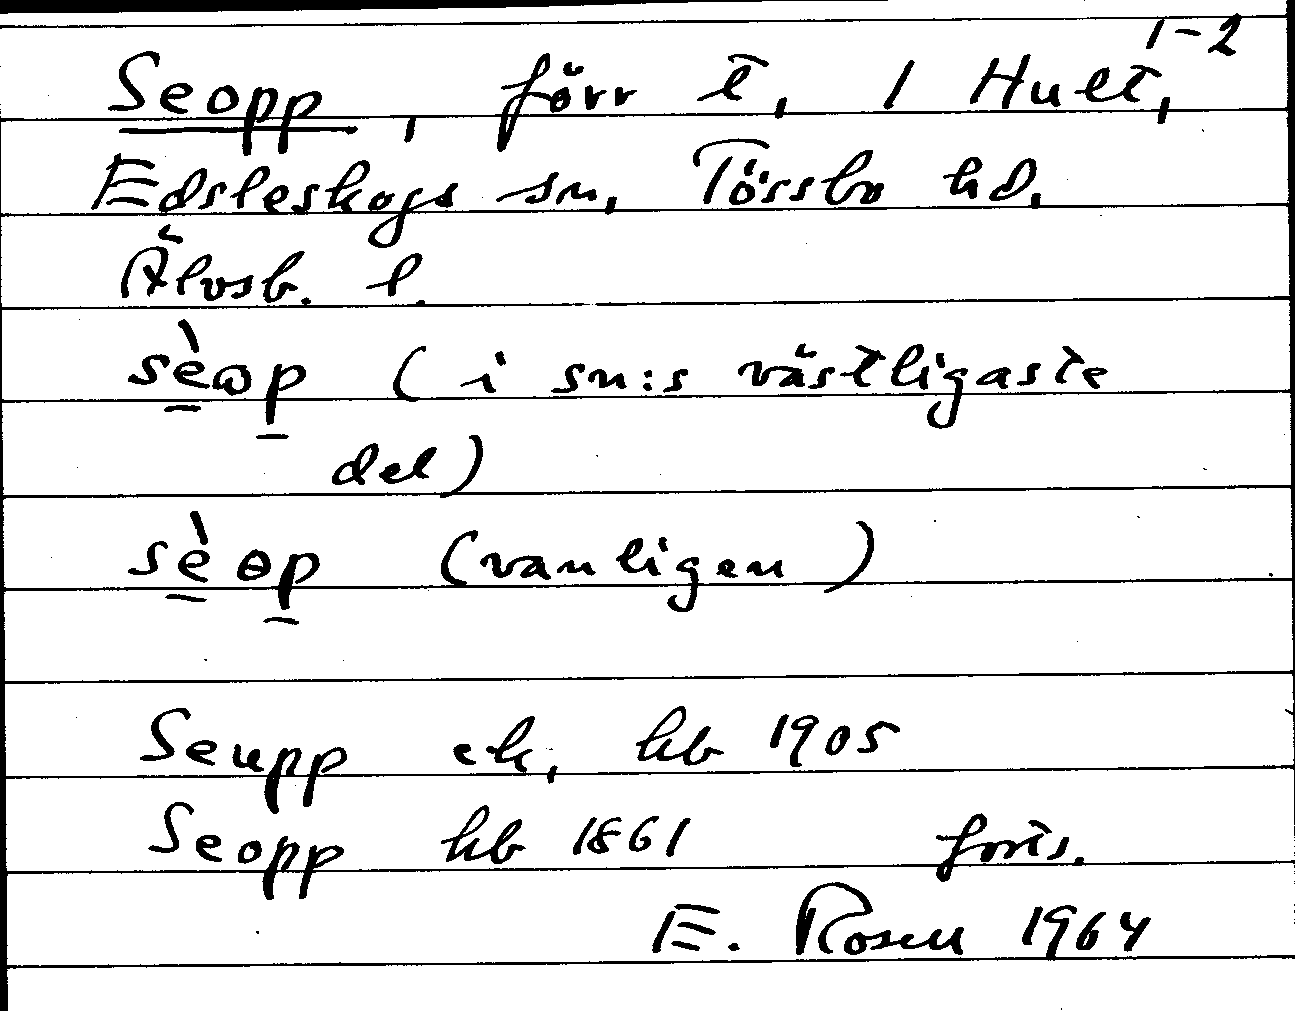 1-2
Seopp, förr t, 1 Hult,
Edsleskogs sn, Tössbo hd.
Älvsb. l.
sèɷp (i sn:s västligaste
del)
sèɵp (vanligen)
Seupp ek, kb 1905
Seopp hb 1861 forts.
E. Rosell 1964